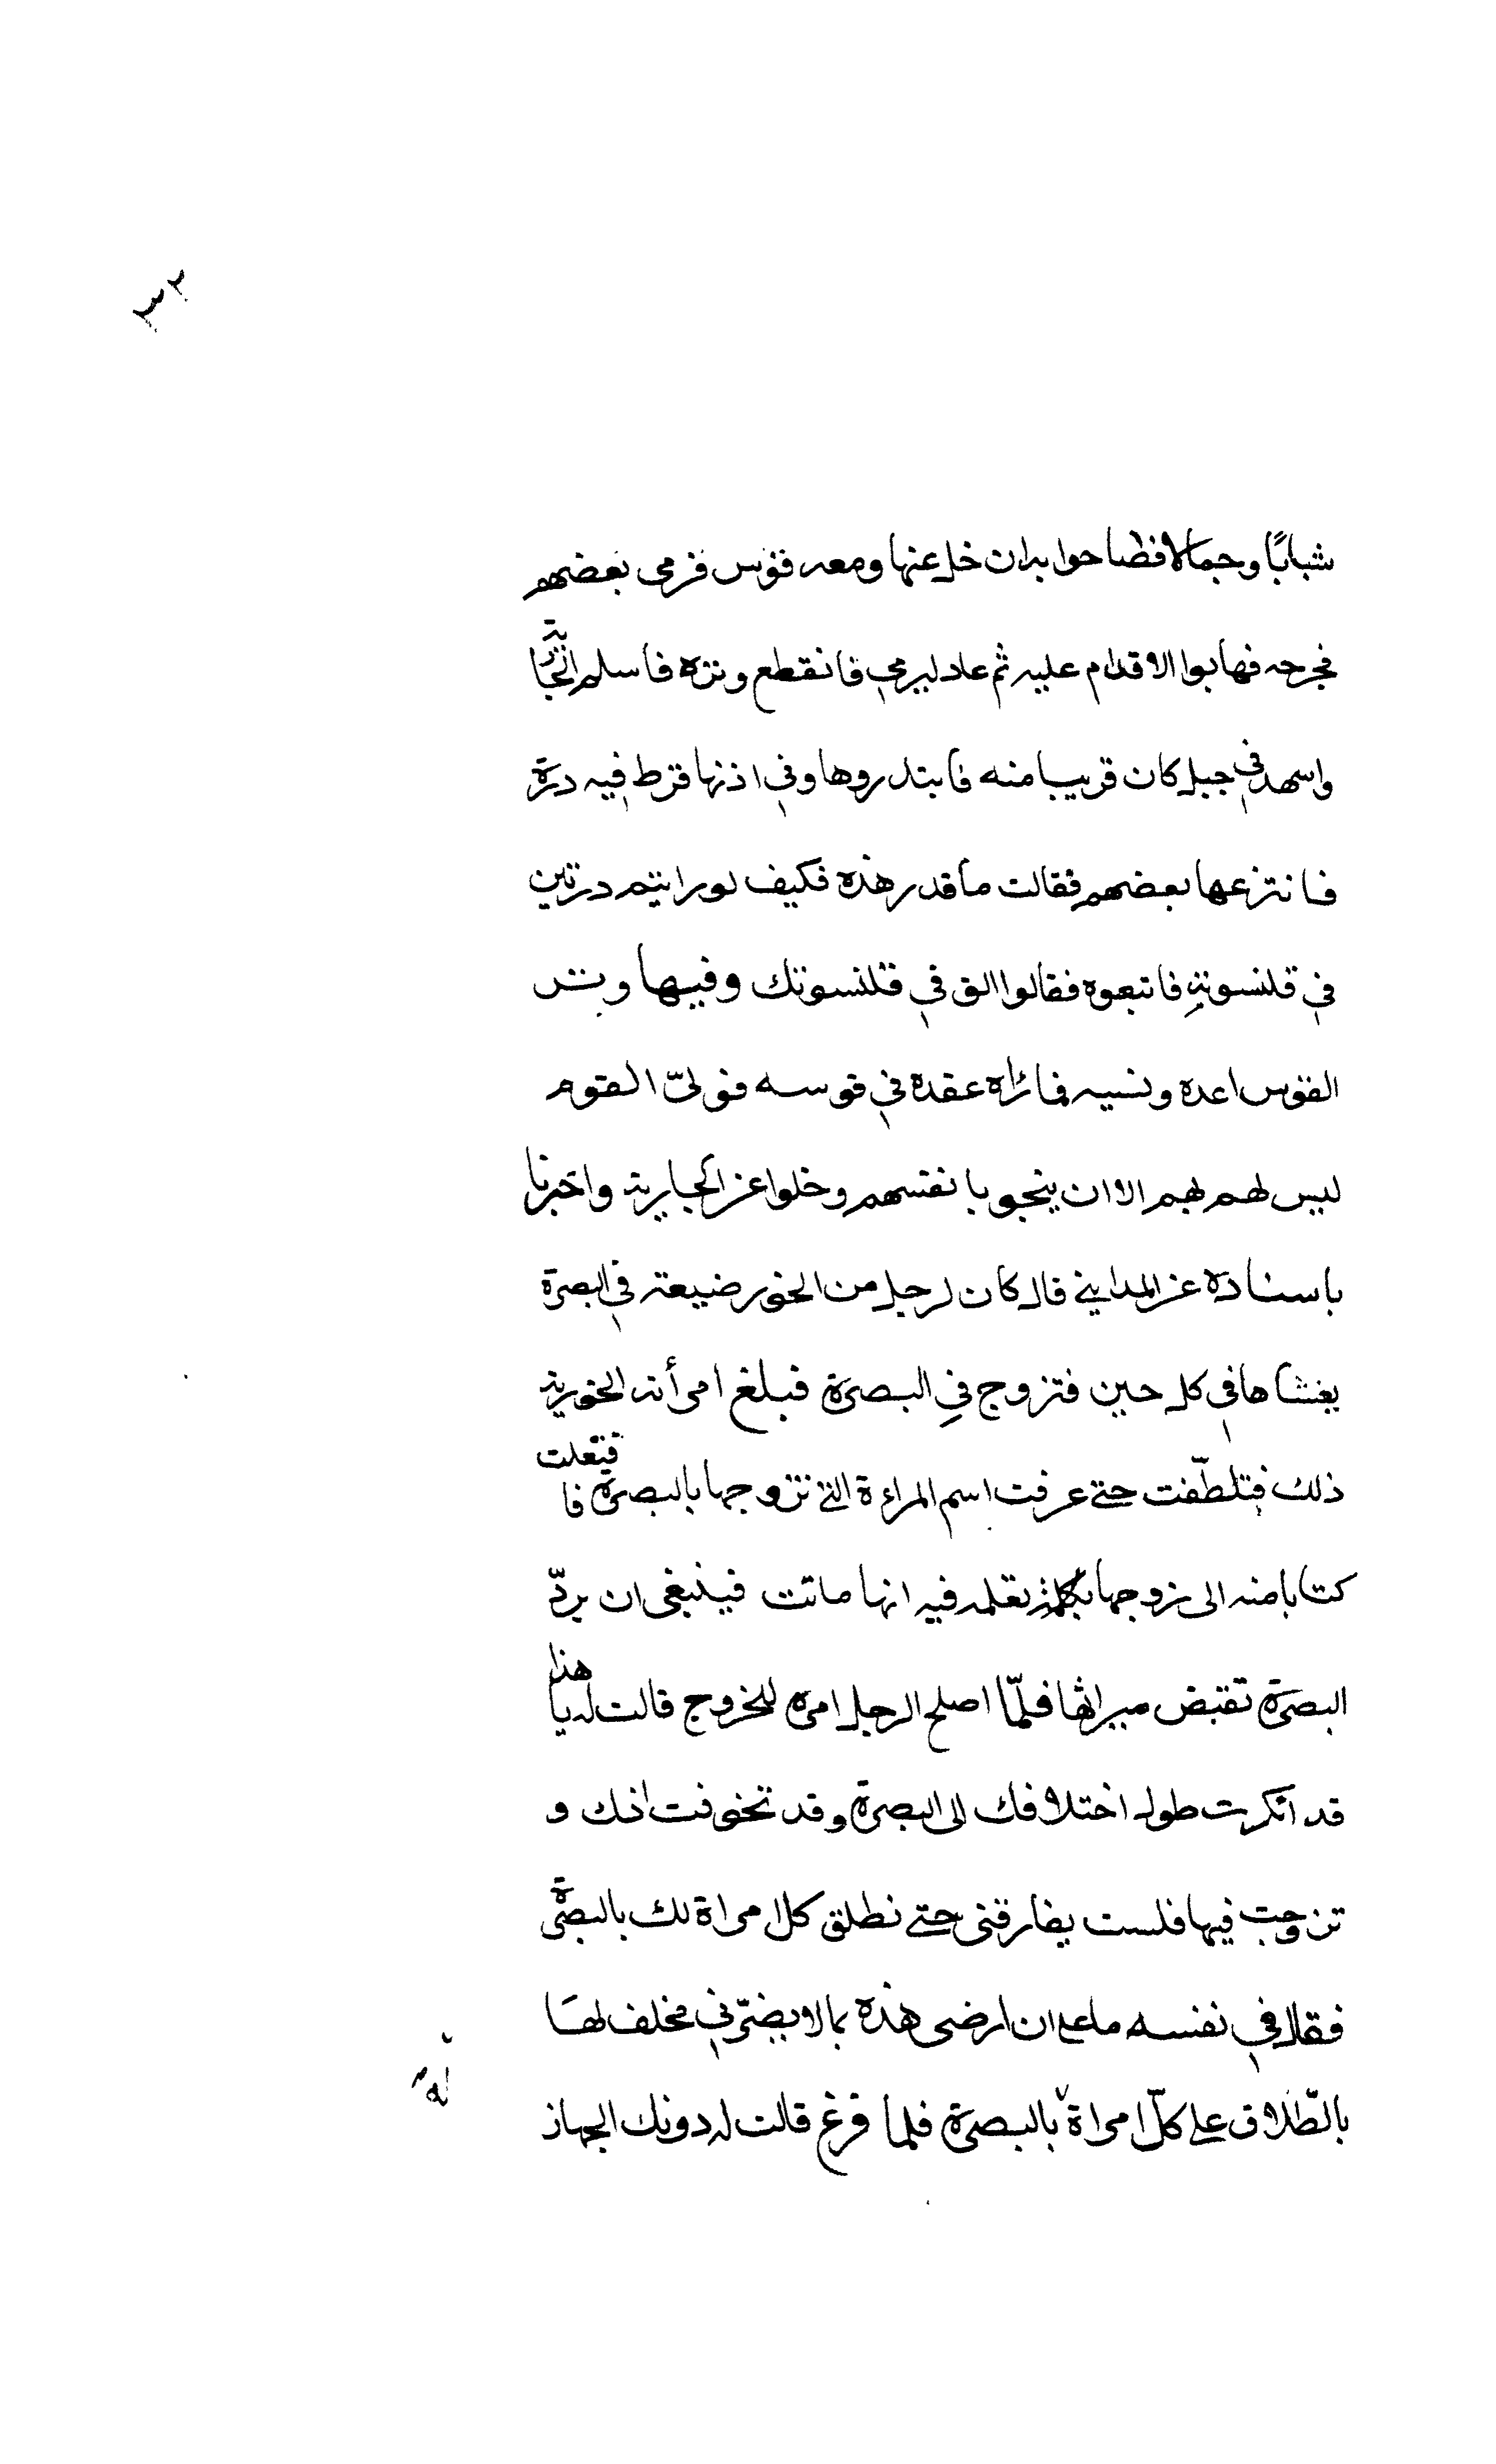 ٣٢
شبابًا وجمالا فصاحوا به ان خل عنها ومعه قوس فرمى بعضهم
فجرحه فهابوا الاقدام عليه ثم عاد ليرمي فانقطع وتره فاسلم الجارية
واسهد في جبل كان قريبا منه فابتدروها وفي اذنها قرط فيه درة
فانتزعها بعضهم فقالت ما قدر هذه فكيف لو رايتم درتين
في قلنسوته فاتبعوه فقالوا الق في قلنسوتك وفيها وتر
القوس اعده ونسيه فما رٔاه عقده في قوسه فولىّ القوم
ليس لهم لهم الا ان ينجو بانفسهم وخلوا عن الجارية واخبرنا
باسناده عن المدايني قال كان لرجل من الخور ضيعته في البصرة
يغشاها في كل حين فتزوج في البصرة فبلغ امرأته الخورية
ذلك فتلطّفت حتى عرفت اسم المراءة التي تزوجها بالبصرة فا فتعلت
كتابا منه الى زوجها يعلمه فيه انها ماتت فينبغي ان يردّ
البصرة تقبض ميراثها فلمّا اصلح الرجل امره للخروج قالت له يا هذا
قد انكرت طول اختلافك الى البصرة وقد تخوفت انك و
تزوجت فيها فلست يفارقنى حتى تطلق كل امراة لك بالبصرة
فقال في نفسه ما على ان ارضى هذه بما لا يضرّني فحلف لها
بالطّلاق على كلّ امراة بالبصرة فلما فرغ قالت له دونك الجهاز
له